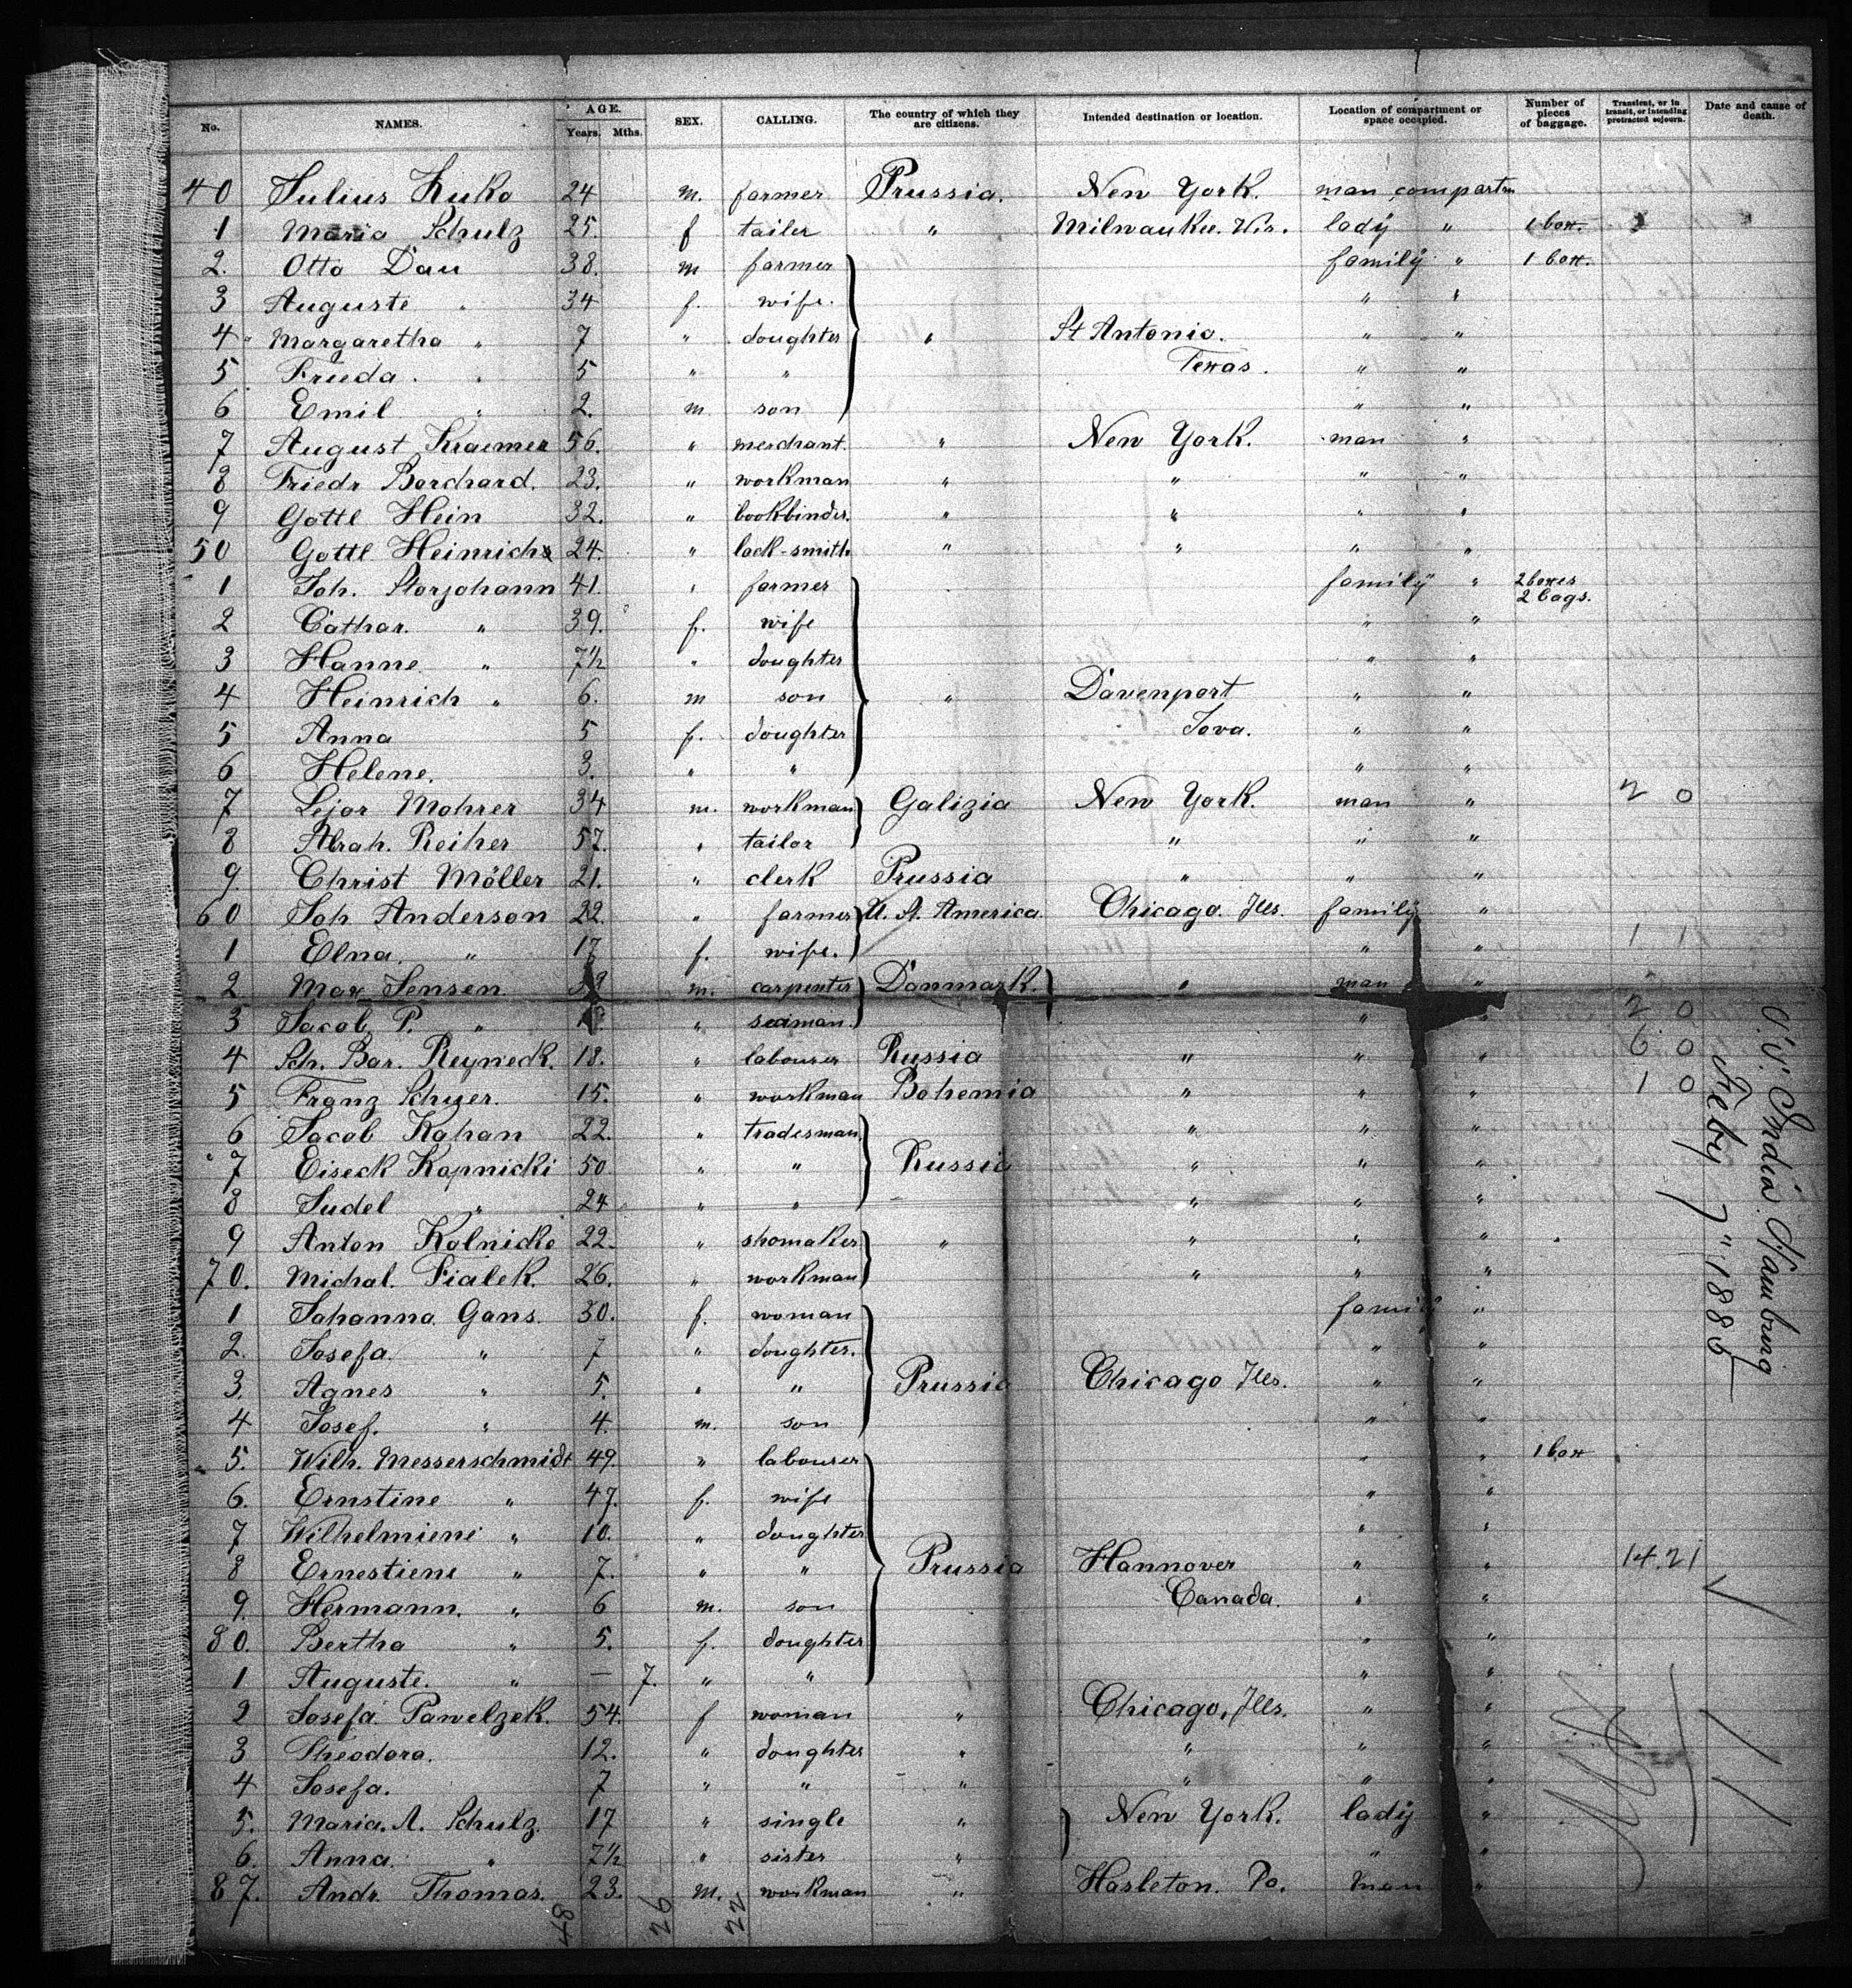 No. NAMES. AGE. Years. Mths. SEX. CALLING. The country of which they are citizens. Intended destination or location. Location of compartment or space occupied. Number of pieces of baggage. Transient, or in transit, or intending protracted sojourn. Date and cause of death.
40 Julius Kuko 24 m. farmer Prussia. New York. man compartm
1 Maria Schulz 25. f tailer " Milwaukee. Wis. lady " 1 box.
2. Otto Dau 38. m farmer family " 1 box.
3 Auguste " 34 f. wife. " "
4 Margaretha " 7 " doughter " St Antonio. " "
5 Frieda. " 5 " " Texas. " "
6 Emil " 2. m son " "
7 August Kraemer 56. " merchant. " New York. man "
8 Friedr Borchard. 23. " workman " " " "
9 Gottl Hein 32. " bookbinder. " " " "
50 Gottl Heinrichs 24. " lock-smith " " " "
1 Joh. Storjohann 41. " farmer family " 2 boxes
2 bags.
2 Cathar. " 39. f. wife " "
3 Hanne " 7½ " doughter " "
4 Heinrich " 6. m son " Davenport " "
5 Anna 5 f. doughter Iova. " "
6 Helene. 3. " " " "
7 Lejor Mohrer 34 m. workman Galizia New York. man " 2 0
8 Abrah. Reiher 57. " tailor " " "
9. Christ Möller 21. " clerk Prussia " " "
60 Joh Anderson 22. " farmer U. St. America. Chicago. Ills. family "
1 Elna. " 17 f. wife. " " 1 1
2. Max Jensen m. carpenter Danmark. " man "
3 Jacob P. " " seaman. " " 2 0
4 Sch. Bar. Reyneck. 18. " labourer Russia " " " 6 0
5 Franz Schyer. 15. " workman Bohemia " " " 1 0
6 Jacob Kahan 22. " tradesman. " " "
7 Eiseck Kopnicki 50 " " Russia " " "
8 Judel " 24 " " " " "
9 Anton Kolnicko 22. " shomaker " " " "
70. Michal. Fialek. 26. " workman " " "
1 Johanna Gans. 30. f. woman family "
2. Josefa. " 7 " doughter. " "
3. Agnes " 5. " " Prussia Chicago Ills. " "
4 Josef. " 4. m. son " "
5. Wilh. Messerschmidt 49. " labourer " " 1 box
6. Ernstine " 47. f. wife " "
7 Wilhelmiene " 10. " doughter " "
8 Ernestiene " 7. " " Prussia Hannover " " 14.21
9. Hermann. " 6 m. son Canada. " "
80. Bertha " 5. f. doughter " "
1 Auguste. " — 7. " " " "
2 Josefa Pawelzek. 54. f woman " Chicago, Ills. " "
3 Theodora. 12. " doughter " " " "
4 Josefa. 7 " " " " " "
5. Maria. A. Schulz. 17 " single " New York. lady "
6. Anna. " 7½ " sister " " "
87. Andr. Thomas. 23. m. workman " Hasleton. Pa. man "
48 26 22
S.S. India. Hamburg
Feby 7" 1885